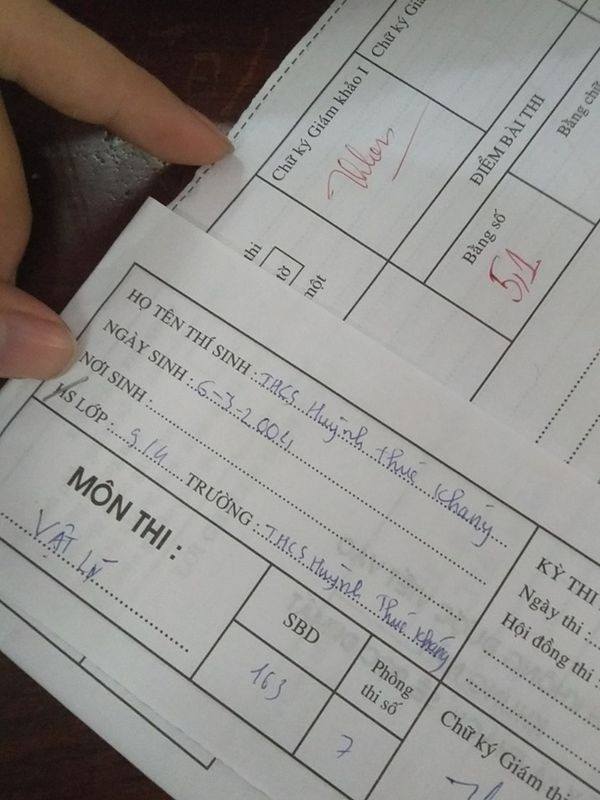 Chữ ký Giám khảo I
Chữ ký Giá
ĐIỂM BÀI THI
Bằng số
Bằng chữ
5,1
thi
tờ
một
HỌ TÊN THÍ SINH : THCS Huỳnh Thúc Kháng
NGÀY SINH : 6-3-2004
NƠI SINH
HS LỚP : 9/4 TRƯỜNG : THCS Huỳnh Thúc Kháng
MÔN THI :
VẬT LÝ
SBD
163
Phòng
thi số
7
KỲ THI
Ngày thi :
Hội đồng thi
Chữ ký Giám thị